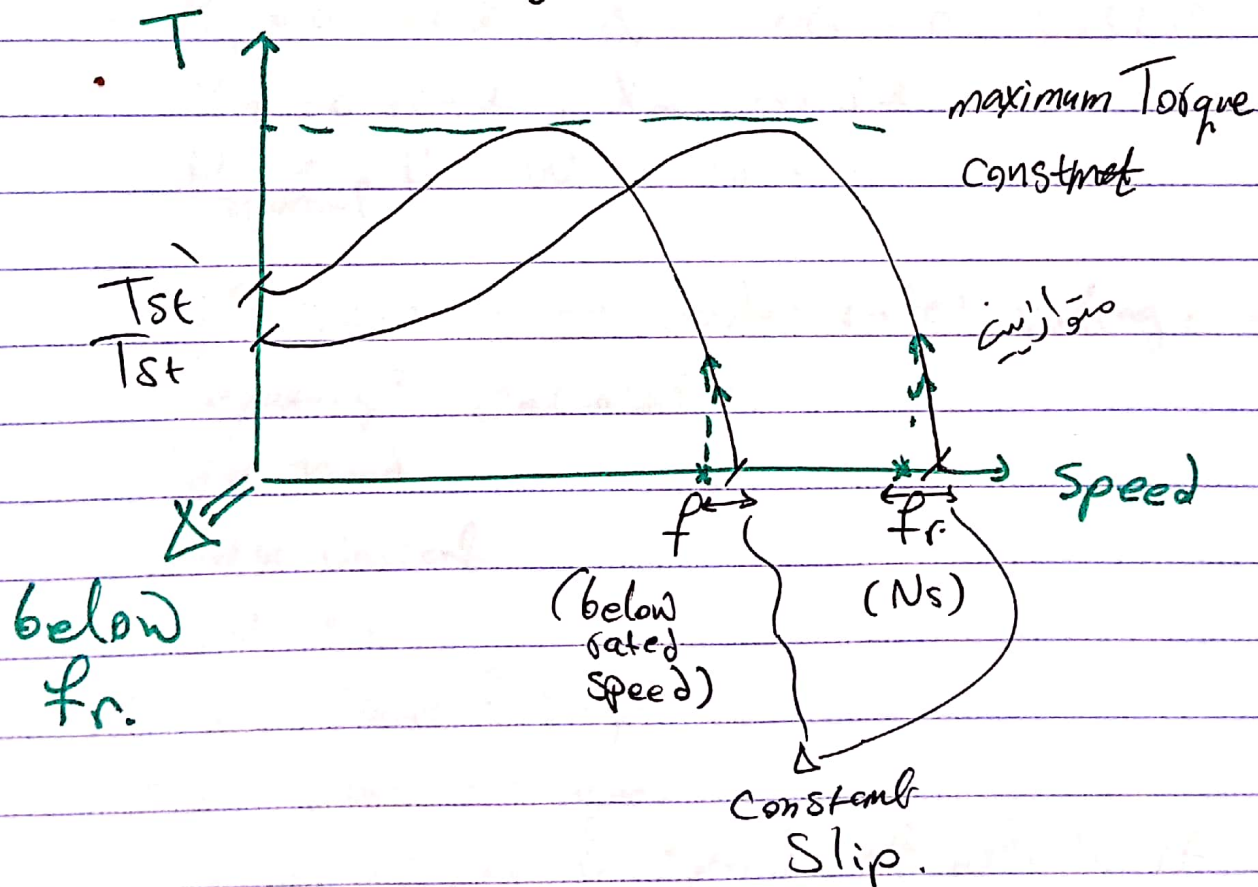 T
maximum Torque
constmat
Tst`
Tst
متوازيين
Speed
f
fr.
(below
rated
speed)
(Ns)
below
fr.
Constant
Slip.